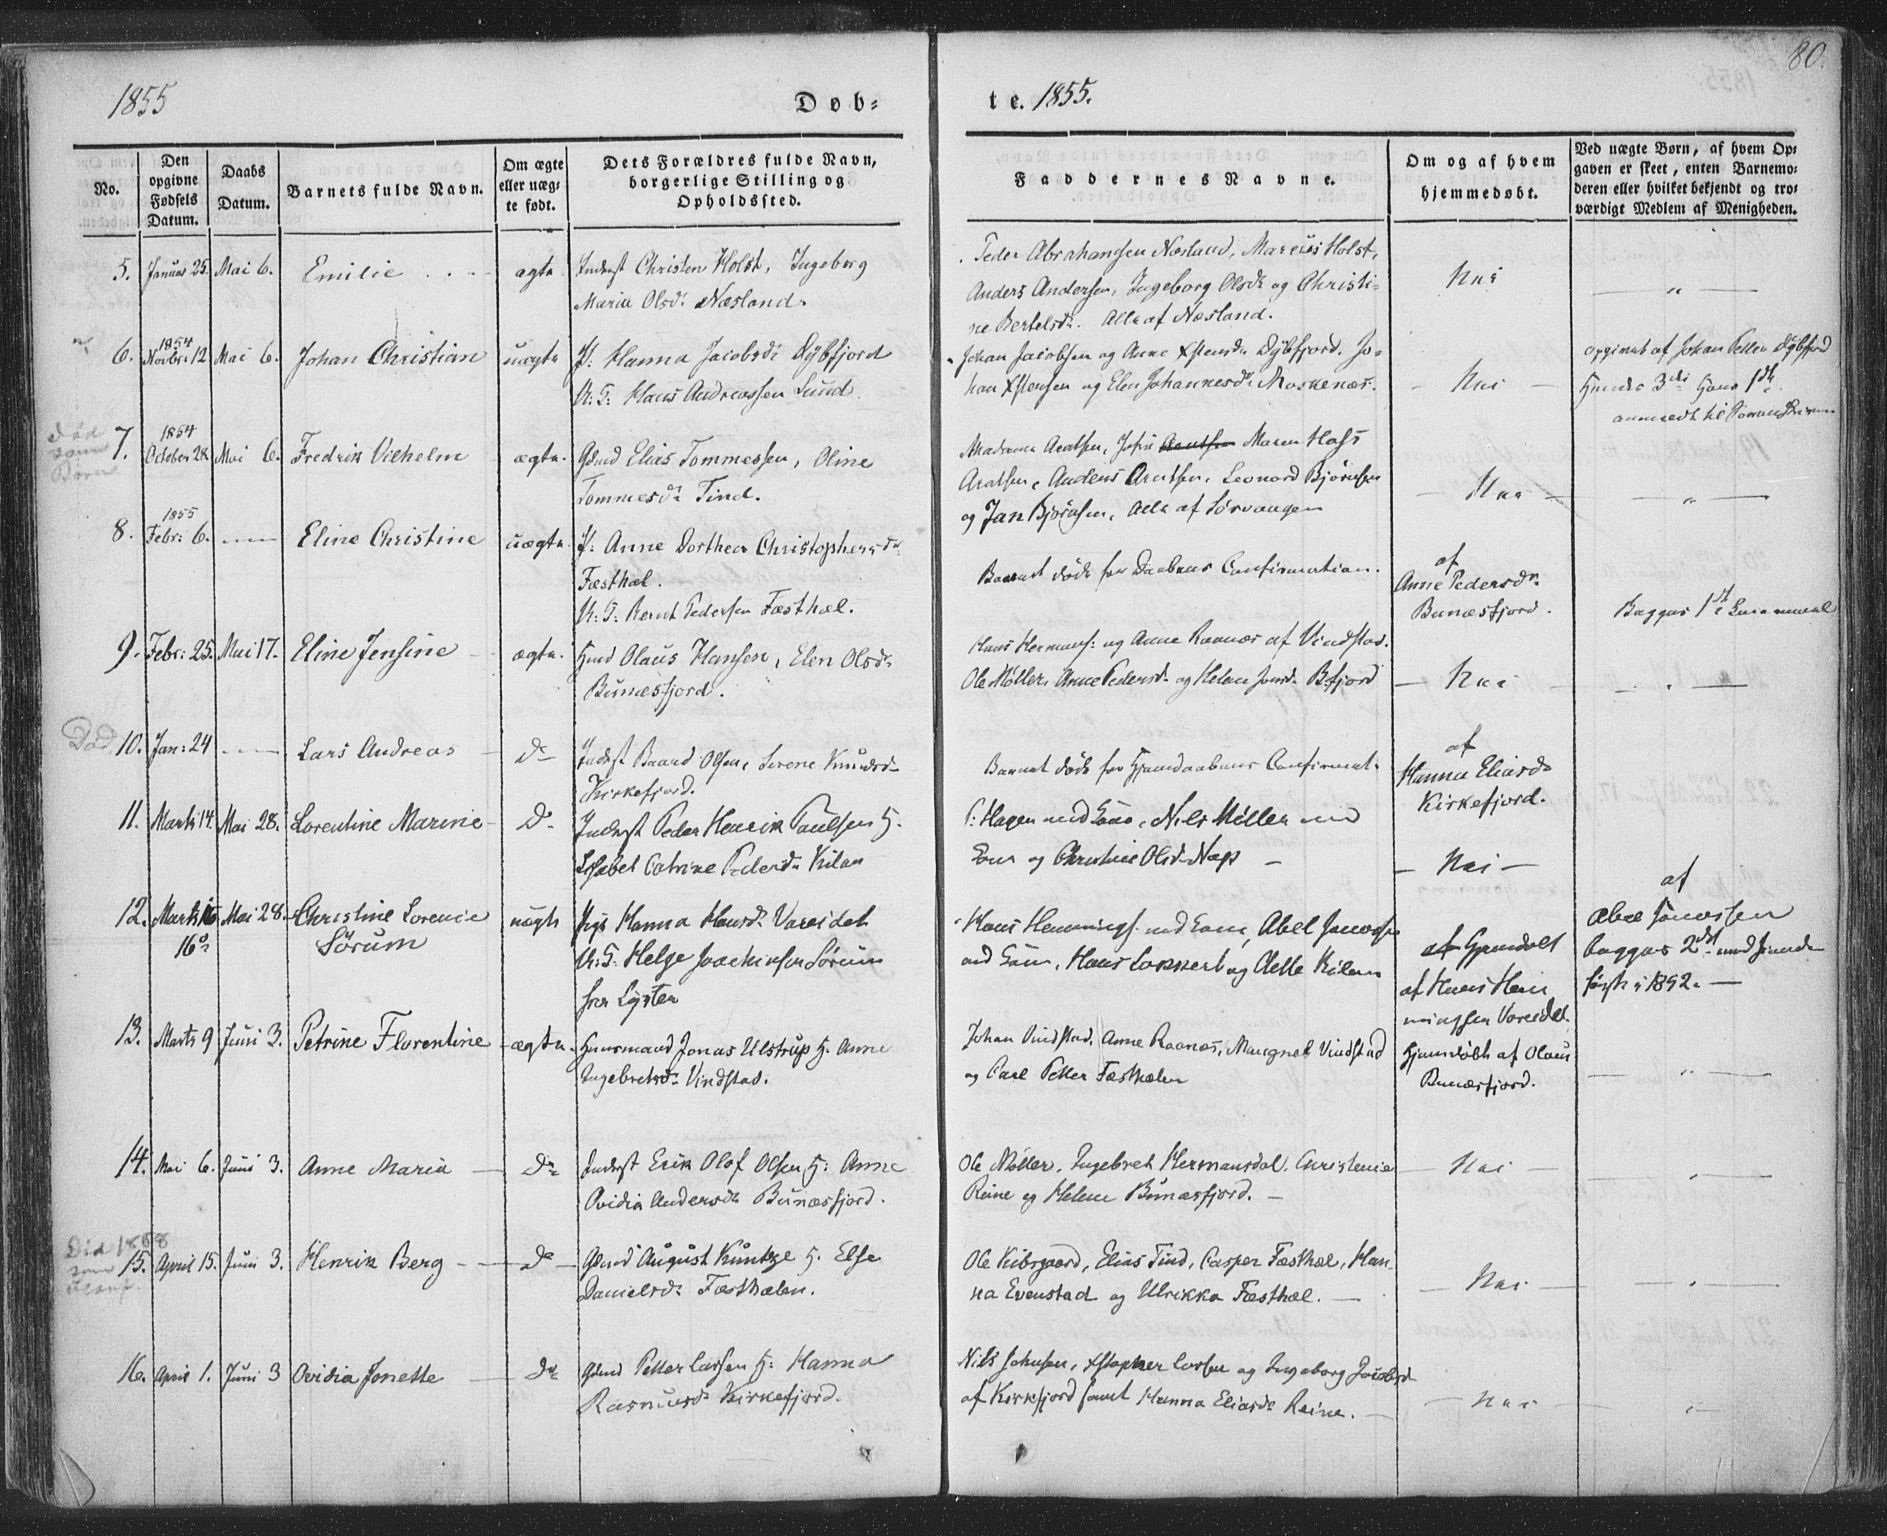 1855
Døb-
te. 1855.
80.
No.
Den
opgivne
Fødsels
Datum.
Daabs
Datum.
Barnets fulde Navn.
Om ægte
eller uæg-
te født.
Dets Forældres fulde Navn,
borgerlige Stilling og
Opholdssted.
Faddernes Navne.
Om og af hvem
hjemmedøbt.
Ved uægte Børn, af hvem Op-
gaven er skeet, enten Barnemo-
deren eller hvilket bekjendt og tro-
værdigt Medlem af Menigheden.
5. Januar 25. Mai 6. Emilie ægte Inderst Christen Holst, Ingeborg
Maria Olsdr Næsland.
Peder Abrahamsen Næsland, Marcus Holst,
Anders Andersen, Ingeborg Olsdr og Christi-
ne Bertelsdr. Alle af Næsland.
Nei
— " —
6. 1854
Novbr: 12 Mai 6. Johan Christian uægte P: Hanna Jacobsdr Dybfjord
U: F: Hans Andreassen Lund.
Johan Jacobsen og Anne Xstensdr Dybfjord. Jo-
han Xstensen og Elen Johannesdr Moskenæs.
— Nei —
opgivet af Johan Petter Dybfjord
Hendes 3die Hans 1ste
anmeldt til
Død
som
Barn
7. 1854
October 28 Mai 6. Fredrik Vilhelm ægte Gdmd Elias Tommessen, Oline
Tommesdr Tind.
Madame Arntsen, Maren Hass
Arntsen, Anders Arntsen, Leonord Bjørnsen
og Jan Bjørnsen, Alle af Sørvaagen
— Nei —
— " —
8. 1855
Febr: 6. — Eline Christine uægte P: Anne Dorthea Christophersdr
Fæsthæl.
U: F: Bernt Pedersen Fæsthæl.
Barnet døde før Daabens Confirmation.
af
Anne Pedersdr
Bunæsfjord.
Begges 1ste Leiermaal
9. Febr: 25. Mai 17. Eline Jensine ægte Hmd Olaus Hansen, Elen Olsdr
Bunæsfjord.
Hans Hermans: og Anne Ravnæs af Vindstad.
Ole Møller, Anne Pedersdr og Helene Jonsdr Bfjord
— Nei —
— " —
Død
10. Jan: 24 — Lars Andreas — Do Inderst Baard Olsen, Serene Knudsdr
Kirkefjord.
Barnet døde før Hjemdaabens Confirmat.
af
Hanna Eliasdr
Kirkefjord.
11. Marts 14. Mai 28. Lorentine Marine — Do Inderst Peder Henrik Paulsen H.
Lisabet Catrine Pedersdr Kilan
P: Hagen med Kone, Nils Møller med
Kone og Christine Olsd Nap —
— Nei —
12. Marts 16 Mai 28. Christine Lorencie uægte Pige Hanna Hansdr Vareidet
16de
Sørum
U: F: Helge Joachimsen Sørum
fra Lyster
Hans Hemmings: med Kone, Abel Jonassen
med Kone, Hans Lockert og Kilan
af Hjemdøbt
af Hans Hem
mingsen Vareidet
af
Abel Jonassen
begges 2det med hinanden
først i 1852. —
13. Marts 9 Juni 3. Petrine Florentine ægte Huusmand Jonas Ulstrup H: Anne
Ingebretsdr Vindstad.
Johan Vindstad, Anne Ravnæs, Margret Vindstad
og Carl Petter Fæsthælen
Hjemdøbt af Olaus
Bunæsfjord.
— " —
14. Mai 6. Juni 3. Anne Maria — Do Inderst Erik Olof Olsen H: Anne
Ovidia Andersdr Bunæsfjord.
Ole Møller, Ingebret Hermansdal, Christence
Reine og Helene Bunæsfjord. —
— Nei —
— " —
Død 1868
som
15. April 15. Juni 3. Henrik Berg — Do — Gdmd August Kuntze H. Else
Danielsdr Fæsthælen.
Ole Kibsgaard, Elias Tind, Casper Fæsthæl, Han-
na Evenstad og Ulrikka Fæsthæl. —
— Nei —
— " —
16. April 1. Juni 3 Ovidia Jonette — Do Gdmd Petter Larsen H: Hanna
Rasmusdr Kirkefjord.
Nils Johnsen, Xstopher Larsen og Ingeborg Jacobsd
af Kirkfjord samt Hanna Eliasdr Reine. —
— Nei —
— " —